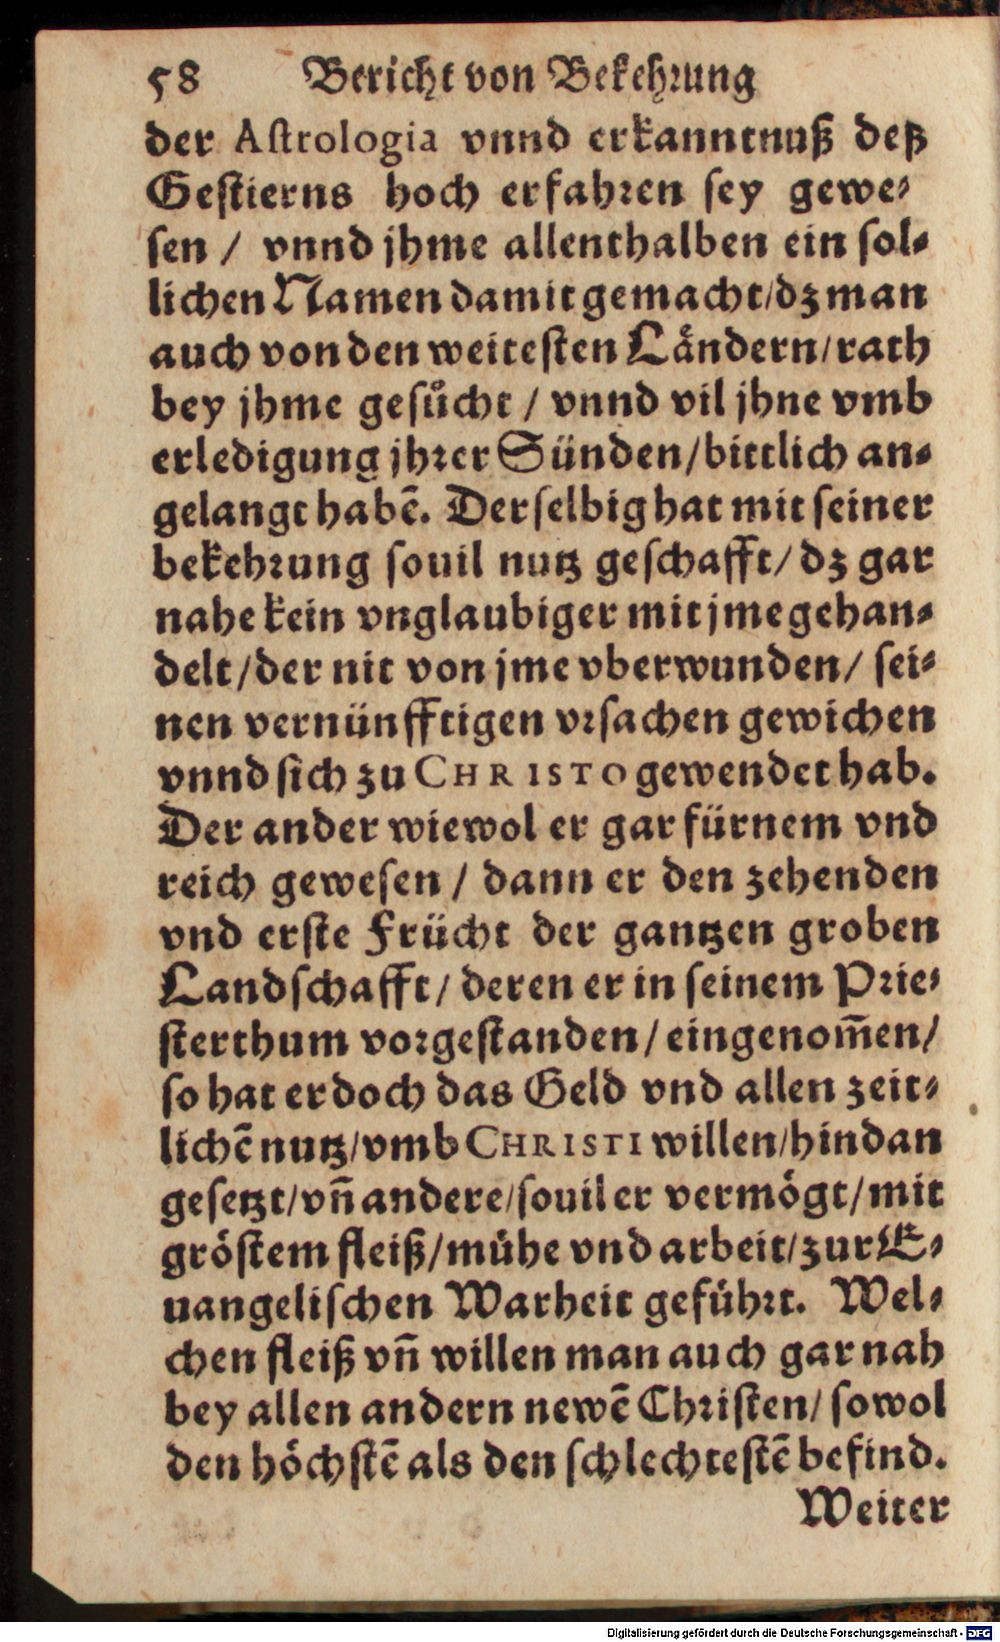 58 Bericht von Bekehrung
der Astrologia vnnd erkanntnuß deß
Gestierns hoch erfahren sey gewe-
sen / vnnd jhme allenthalben ein sol-
lichen Namen damit gemacht/dz man
auch von den weitesten Ländern/rath
bey jhme gesuͦcht / vnnd vil jhne vmb
erledigung jhrer Sünden/bittlich an-
gelangt habē. Derselbig hat mit seiner
bekehrung souil nutz geschafft/dz gar
nahe kein vnglaubiger mit jme gehan-
delt/der nit von jme vberwunden/ sei-
nen vernünfftigen vrsachen gewichen
vnnd sich zu CHRISTO gewendet hab.
Der ander wiewol er gar fürnem vnd
reich gewesen / dann er den zehenden
vnd erste Frücht der gantzen groben
Landschafft/ deren er in seinem Prie-
sterthum vorgestanden/eingenom̄en/
so hat er doch das Geld vnd allen zeit-
lichē nutz/vmb CHRISTI willen/hindan
gesetzt/vn̄ andere/souil er vermögt/mit
gröstem fleiß/mühe vnd arbeit/zur E-
uangelischen Warheit geführt. Wel-
chen fleiß vn̄ willen man auch gar nah
bey allen andern newē Christen/ sowol
den höchstē als den schlechtestē befind.
Weiter
Digitalisierung gefördert durch die Deutsche Forschungsgemeinschaft - DFG